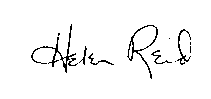 Helen Reid